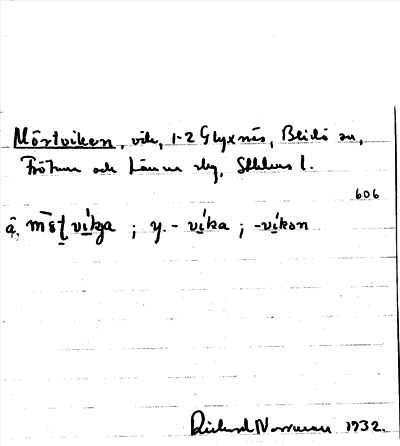 Mörtviken, vik, 1-2 Glyxnäs, Blidö sn,
Frötuna och Länna skg, Sthlms l.
606
ä. vika ; y. - vi̍ka ; -vi̍kən
Richard Norrman 1932.